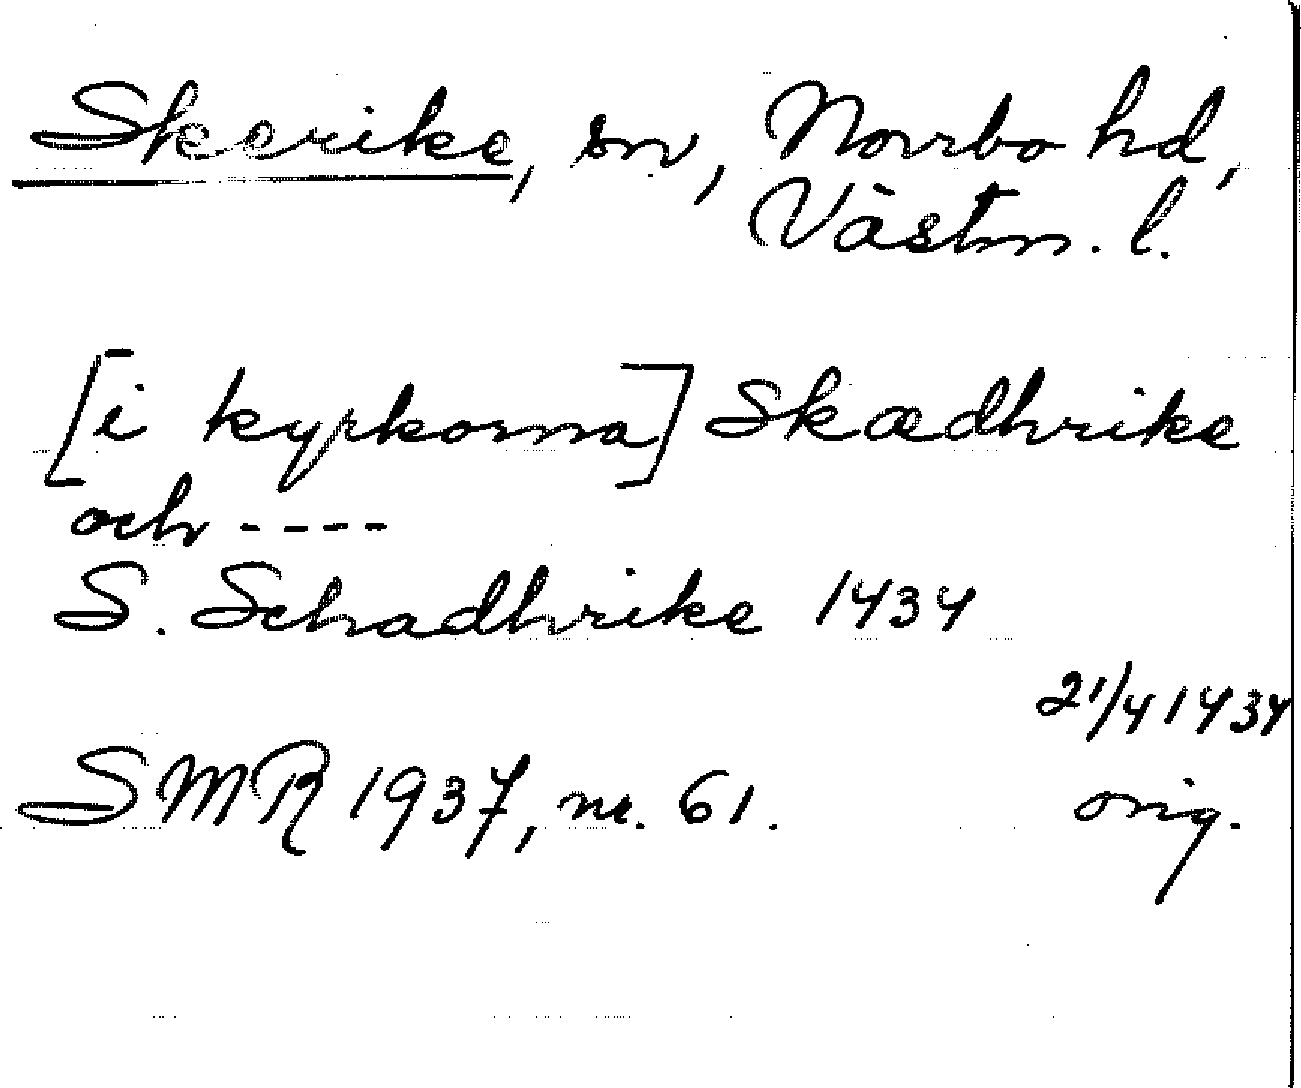 Skerike, sn, Norrbo hd,
Västm. l.
[i kyrkorna] Skædhrike
och ----
S. Schadhrike 1434
21/4 1434
SMR 1937, nr. 61.
orig.